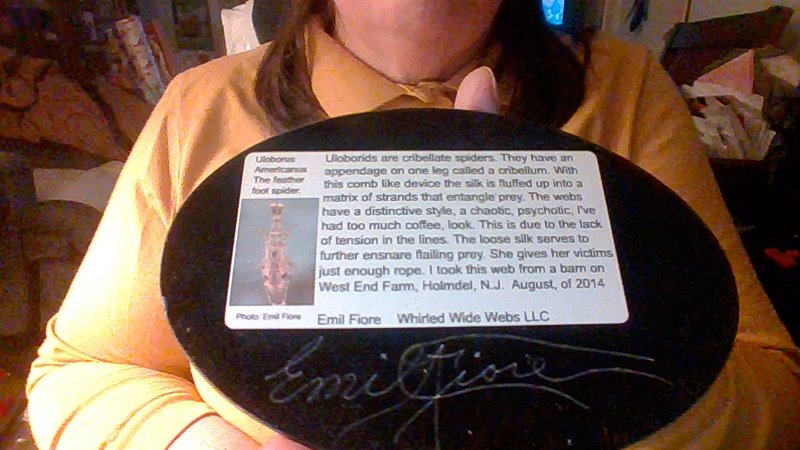 Uloborus
Americanus
The feather
foot spider.
Uloborids are cribellate spiders. They have an
appendage on one leg called a cribellum. With
this comb like device the silk is fluffed up into a
matrix of strands that entangle prey. The webs
have a distinctive style, a chaotic, psychotic, I've
had too much coffee, look. This is due to the lack
of tension in the lines. The loose silk serves to
further ensnare flailing prey. She gives her victims
just enough rope. I took this web from a barn on
West End Farm, Holmdel, N.J. August, of 2014
Photo: Emil Fiore
Emil Fiore Whirled Wide Webs LLC
Emil Fiore